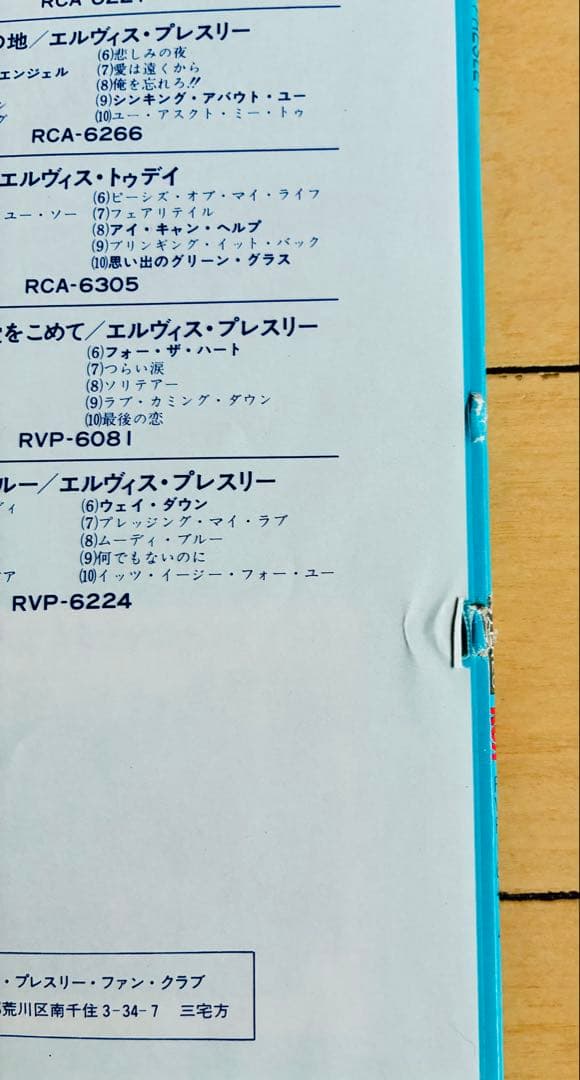 の地／エルヴィス・プレスリー
(6)悲しみの夜
エンジェル
(7)愛は遠くから
(8)俺を忘れろ!!
(9)シンキング・アバウト・ユー
(10)ユー・アスクト・ミー・トゥ
RCA-6266
エルヴィス・トゥデイ
(6)ピーシズ・オブ・マイ・ライフ
ユー・ソー
(7)フェアリテイル
(8)アイ・キャン・ヘルプ
(9)ブリンギング・イット・バック
(10)思い出のグリーン・グラス
RCA-6305
をこめて／エルヴィス・プレスリー
(6)フォー・ザ・ハート
(7)つらい涙
(8)ソリテアー
(9)ラブ・カミング・ダウン
(10)最後の恋
RVP-6081
ルー／エルヴィス・プレスリー
ディ
(6)ウェイ・ダウン
(7)プレッジング・マイ・ラブ
(8)ムーディ・ブルー
(9)何でもないのに
(10)イッツ・イージー・フォー・ユー
RVP-6224
・プレスリー・ファン・クラブ
荒川区南千住3-34-7 三宅方